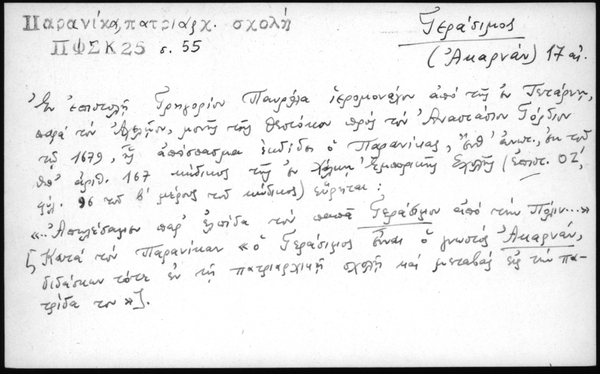 Παρανίκα, πατριαρχ. σχολή
ΠΦΣΚ25 σ. 55
Γεράσιμος
(Ἀκαρνάν) 17 αἰ.
Ἐν ἐπιστολῇ Γρηγορίου ἱερομονάχου ἀπὸ τῆς ἐν Τετάρνῃ,
παρὰ τὸν μονῆς τῆς Θεοτόκου πρὸς τὸν Ἀναστάσιον Γόρδιον
τῷ 1679, ἧς ἀπόσπασμα ἐκδίδει ὁ Παρανίκας, ἐκ τοῦ
ὑπ' ἀριθ. 167 κώδικος τῆς ἐν Χάλκῃ Ἐμπορικῆς Σχολῆς (ἐπιστ. ΟΖ΄,
φύλ. 96 τοῦ β΄ μέρους τοῦ κώδικος) εὕρηται:
«..Ἀπωλέσαμεν παρ' ἐλπίδα τὸν παπᾶ Γεράσιμον ἀπὸ τὴν Πόλιν...»
[Κατὰ τὸν Παρανίκαν «ὁ Γεράσιμος εἶναι ὁ γνωστὸς Ἀκαρνάν,
διδάσκων τότε ἐν τῇ πατριαρχικῇ σχολῇ καὶ μεταβὰς εἰς τὴν πα-
τρίδα του»].